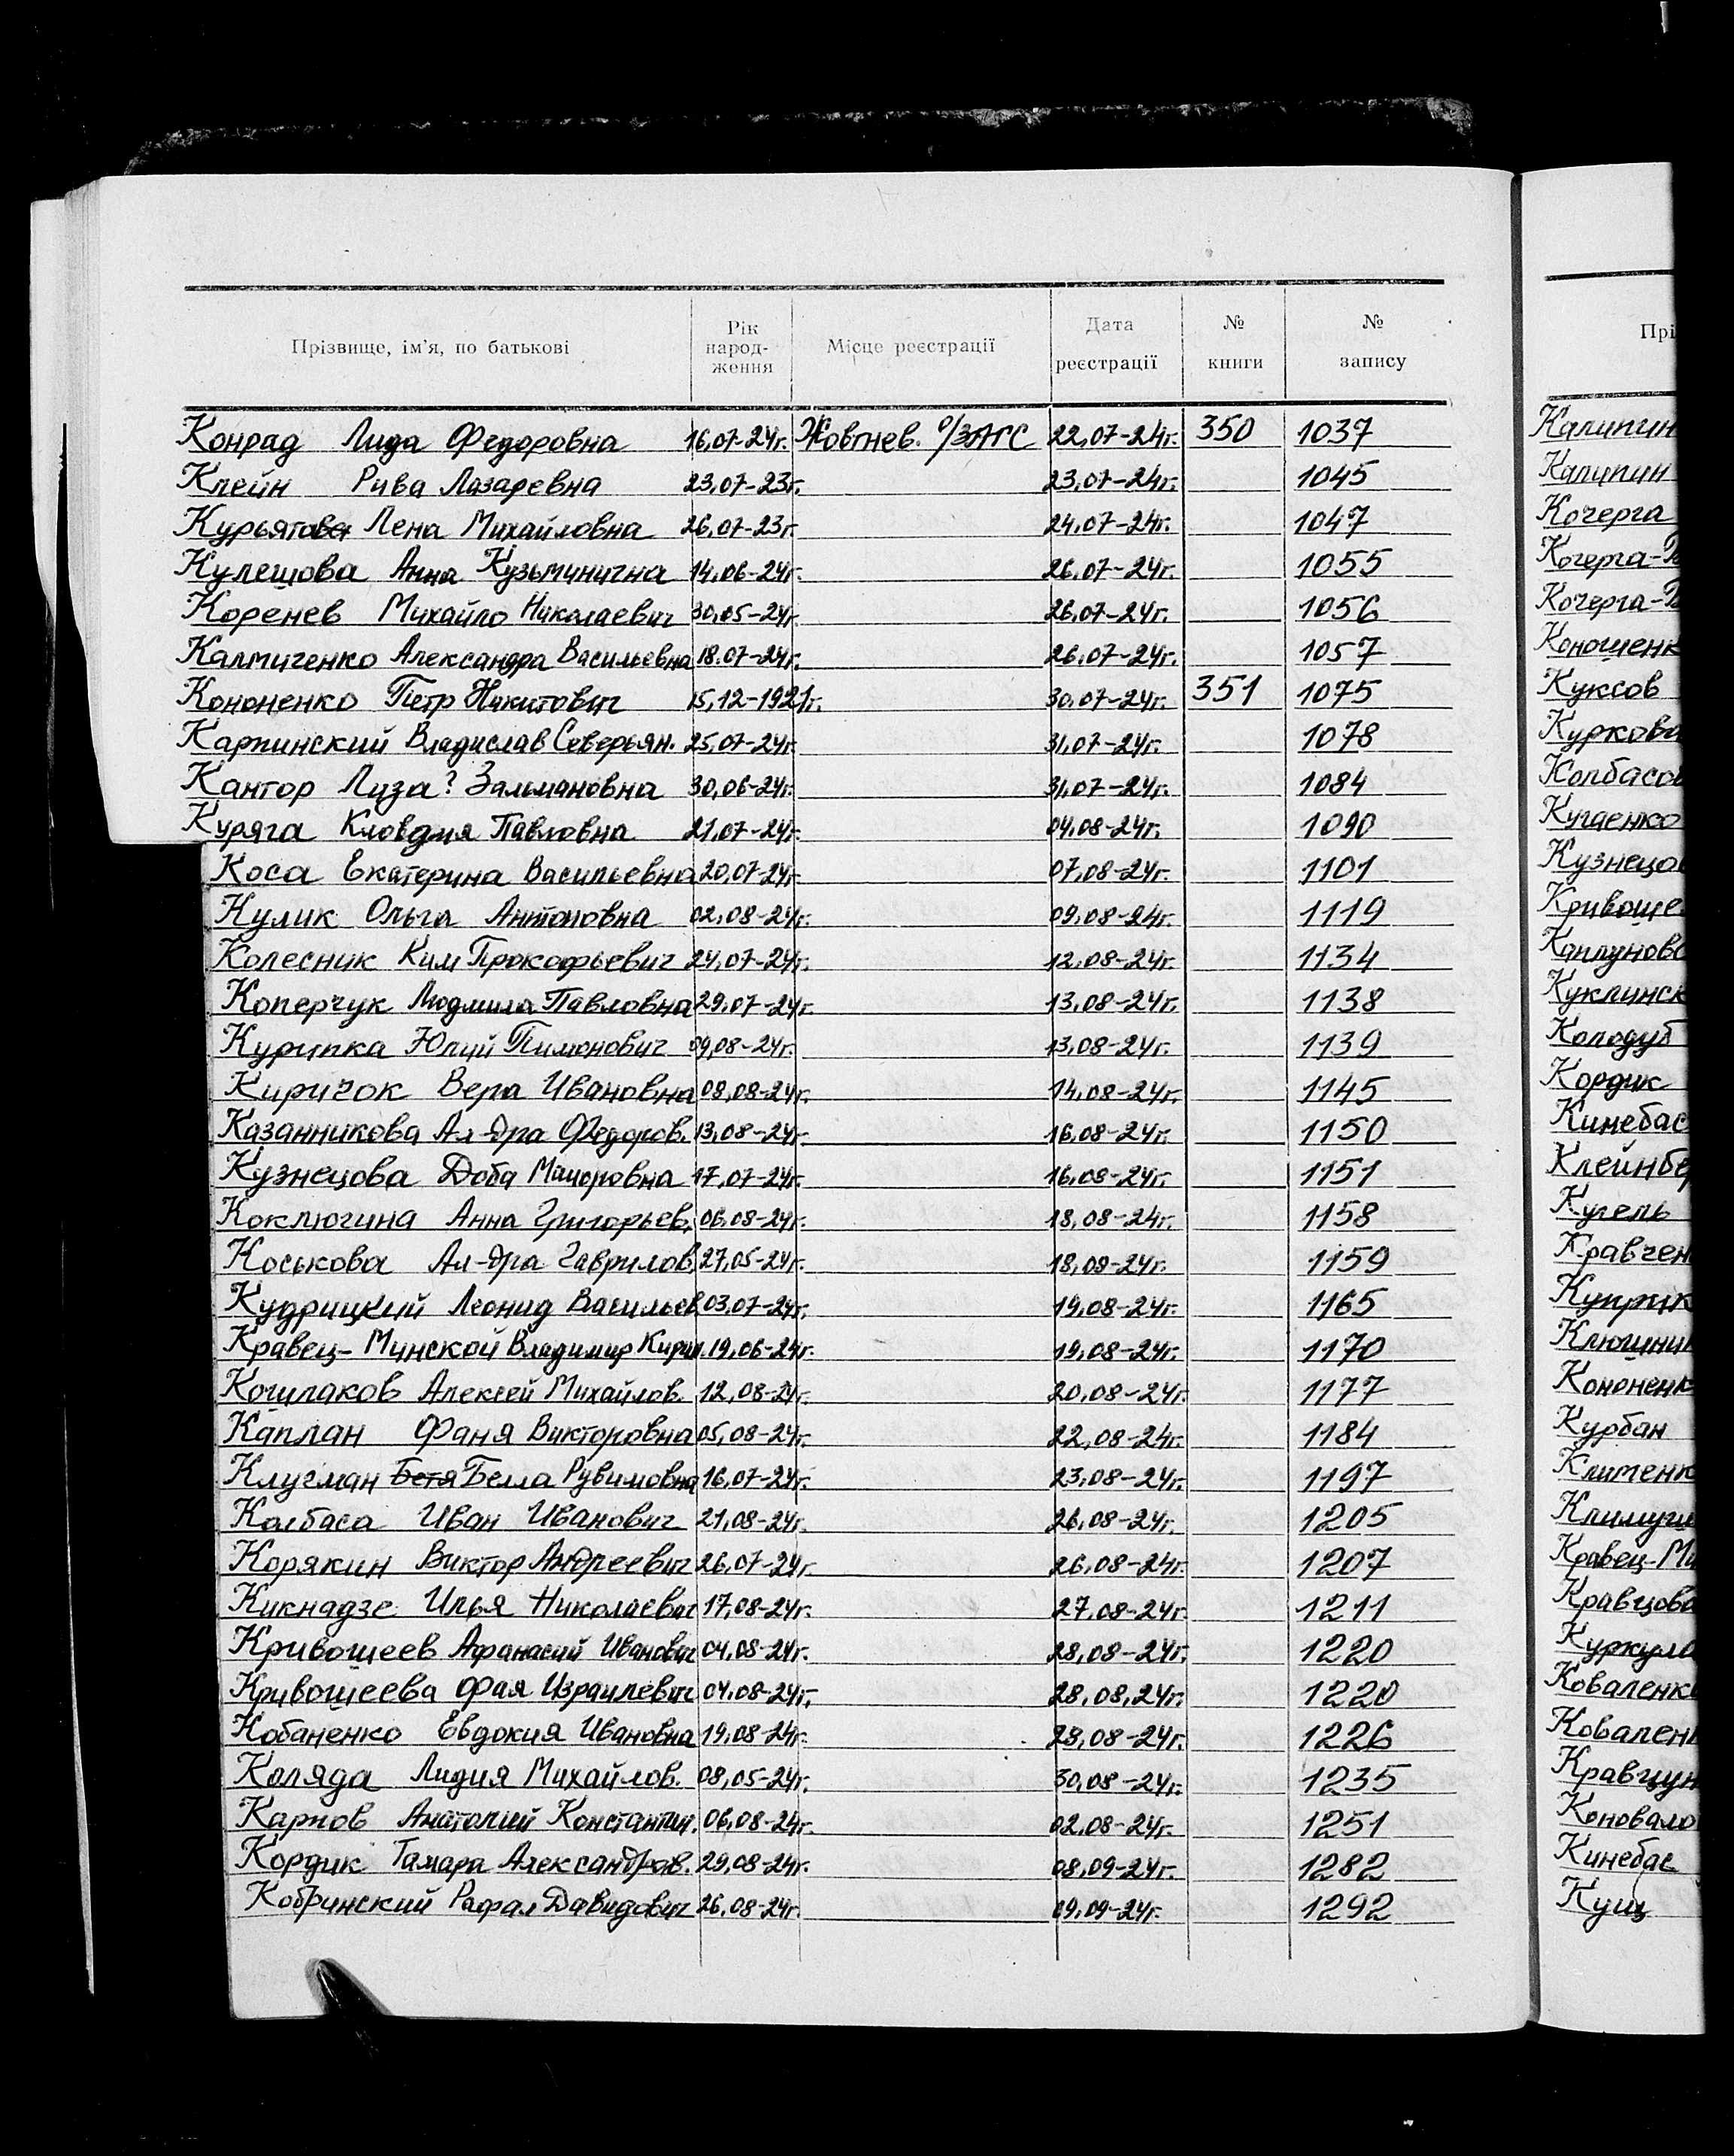 Прізвище, ім'я, по батькові Рік народження Місце реєстрації Дата реєстрації № книги № запису
Конрад Лида Федоровна 16.07-24г. Жовтнев. о/ЗАГС 22.07-24г. 350 1037
Клейн Рива Лазаревна 23.07-23г. 23.07-24г. 1045
Курьятова Лена Михайловна 26.07-23г. 24.07-24г. 1047
Кулешова Анна Кузьминична 14.06-24г. 26.07-24г. 1055
Коренев Михайло Николаевич 30.05-24г. 26.07-24г. 1056
Калмиченко Александра Васильевна 18.07-24г. 26.07-24г. 1057
Кононенко Петр Никитович 15.12-1921г. 30.07-24г. 351 1075
Карпинский Владислав Северьян. 25.07-24г. 31.07-24г. 1078
Кантор Лиза? Зальмановна 30.06-24г. 31.07-24г. 1084
Куряга Кловдия Павловна 21.07-24г. 04.08-24г. 1090
Коса Екатерина Васильевна 20.07-24г. 07.08-24г. 1101
Кулик Ольга Антоновна 02.08-24г. 09.08-24г. 1119
Колесник Ким Прокофьевич 24.07-24г. 12.08-24г. 1134
Коперчук Людмила Павловна 29.07-24г. 13.08-24г. 1138
Курипка Юлий Пимонович 09.08-24г. 13.08-24г. 1139
Киричок Вера Ивановна 08.08-24г. 14.08-24г. 1145
Казанникова Ал-дра Федоров. 13.08-24г. 16.08-24г. 1150
Кузнецова Доба Маиоровна 17.07-24г. 16.08-24г. 1151
Коклюгина Анна Григорьев. 06.08-24г. 18.08-24г. 1158
Коськова Ал-дра Гаврилов. 27.05-24г. 18.08-24г. 1159
Кудрицкий Леонид Васильев 03.07-24г. 19.08-24г. 1165
Кравец-Минской Владимир Кирил. 19.06-24г. 19.08-24г. 1170
Кошлаков Алексей Михайлов. 12.08-24г. 20.08-24г. 1177
Каплан Фаня Викторовна 05.08-24г. 22.08-24г. 1184
Клугман Бетя Белла Рувимовна 16.07-24г. 23.08-24г. 1197
Колбаса Иван Иванович 21.08-24г. 26.08-24г. 1205
Корякин Виктор Андреевич 26.07-24г. 26.08-24г. 1207
Кикнадзе Илья Николаевич 17.08-24г. 27.08-24г. 1211
Кривошеев Афанасий Иванович 04.08-24г. 28.08-24г. 1220
Кривошеева Фая Израилевич 04.08-24г. 28.08.24г. 1220
Кобаненко Евдокия Ивановна 19.08-24г. 28.08-24г. 1226
Коляда Лидия Михайлов. 08.05-24г. 30.08-24г. 1235
Карпов Анатолий Константин. 06.08-24г. 02.08-24г. 1251
Кордик Тамара Александров. 29.08-24г. 08.09-24г. 1282
Кобринский Рафал Давидович 26.08-24г. 09.09-24г. 1292
Прі
Калипин
Калипин
Кочерга
Кочерга-
Кочерга-
Коношенк
Куксов
Куркова
Колбасов
Куцаенко
Кузнецов
Кривоше
Каплуновс
Куклинск
Колодуб
Кордик
Кинебас
Клейнбер
Кугель
Кравчен
Куприк
Клюшник
Кононенк
Курбан
Клименк
Климуш
Кравец-Ми
Кравцова
Куркула
Коваленк
Ковален
Кравцун
Коновало
Кинебас
Кущ